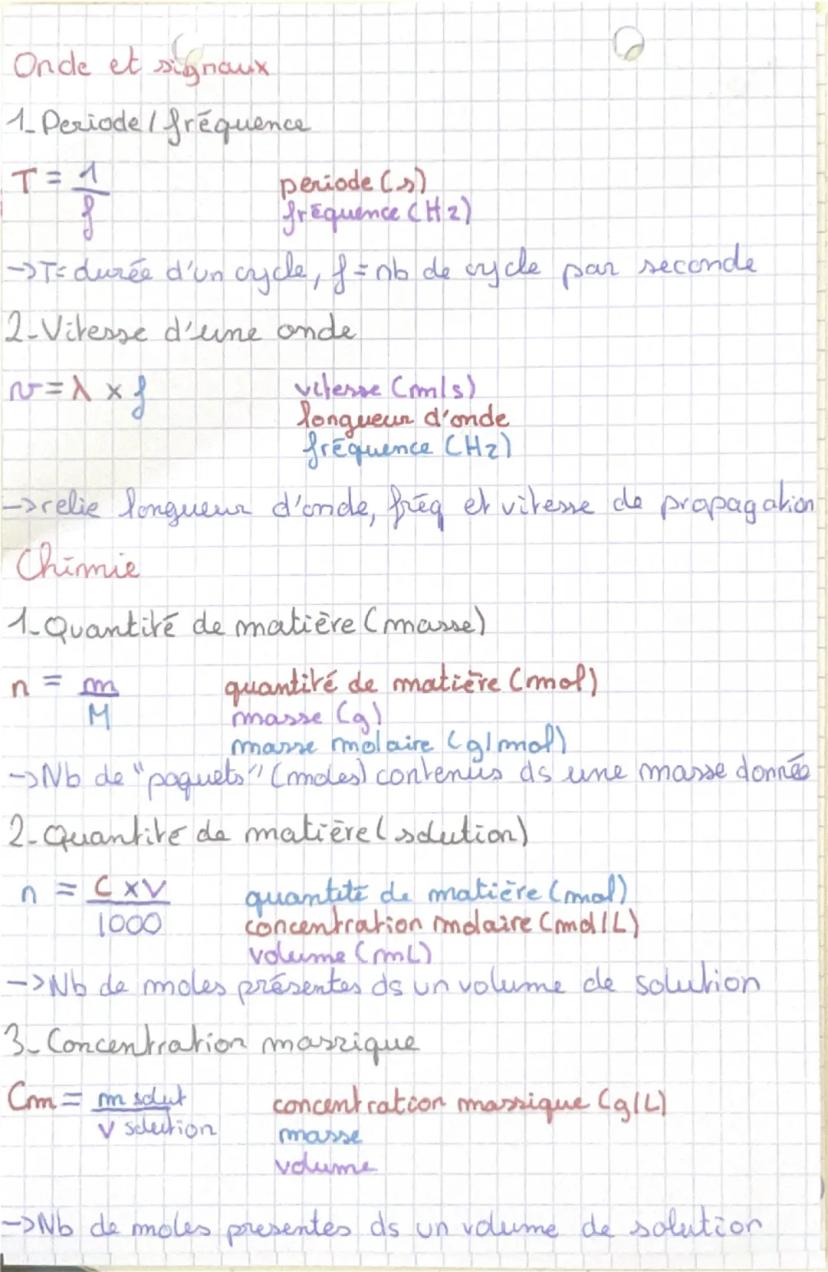 Onde et signaux
1_Periode/fréquence
T = 1/f période (s)
fréquence (Hz)
→T= durée d'un cycle, f = nb de cycle par seconde
2-Vitesse d'une onde
v = λ × f vitesse (m/s)
longueur d'onde
fréquence (Hz)
→relie longueur d'onde, fréq et vitesse de propagation
Chimie
1-Quantité de matière (masse)
n = m/M quantité de matière (mol)
masse (g)
masse molaire (g/mol)
→Nb de "paquets" (moles) contenus ds une masse donnée
2-Quantité de matière (solution)
n = C×V/1000 quantité de matière (mol)
concentration molaire (mol/L)
volume (mL)
→Nb de moles présentes ds un volume de solution
3_Concentration massique
Cm = m solut/V solution concentration massique (g/L)
masse
volume
→Nb de moles presentes ds un volume de solution